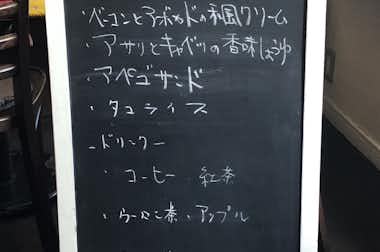 ・ベーコンとアボカドの和風クリーム
・アサリとキャベツの香味しょうゆ
・アペゴサンド
・タコライス
-ドリンク-
・コーヒー・紅茶
・ウーロン茶・アップル